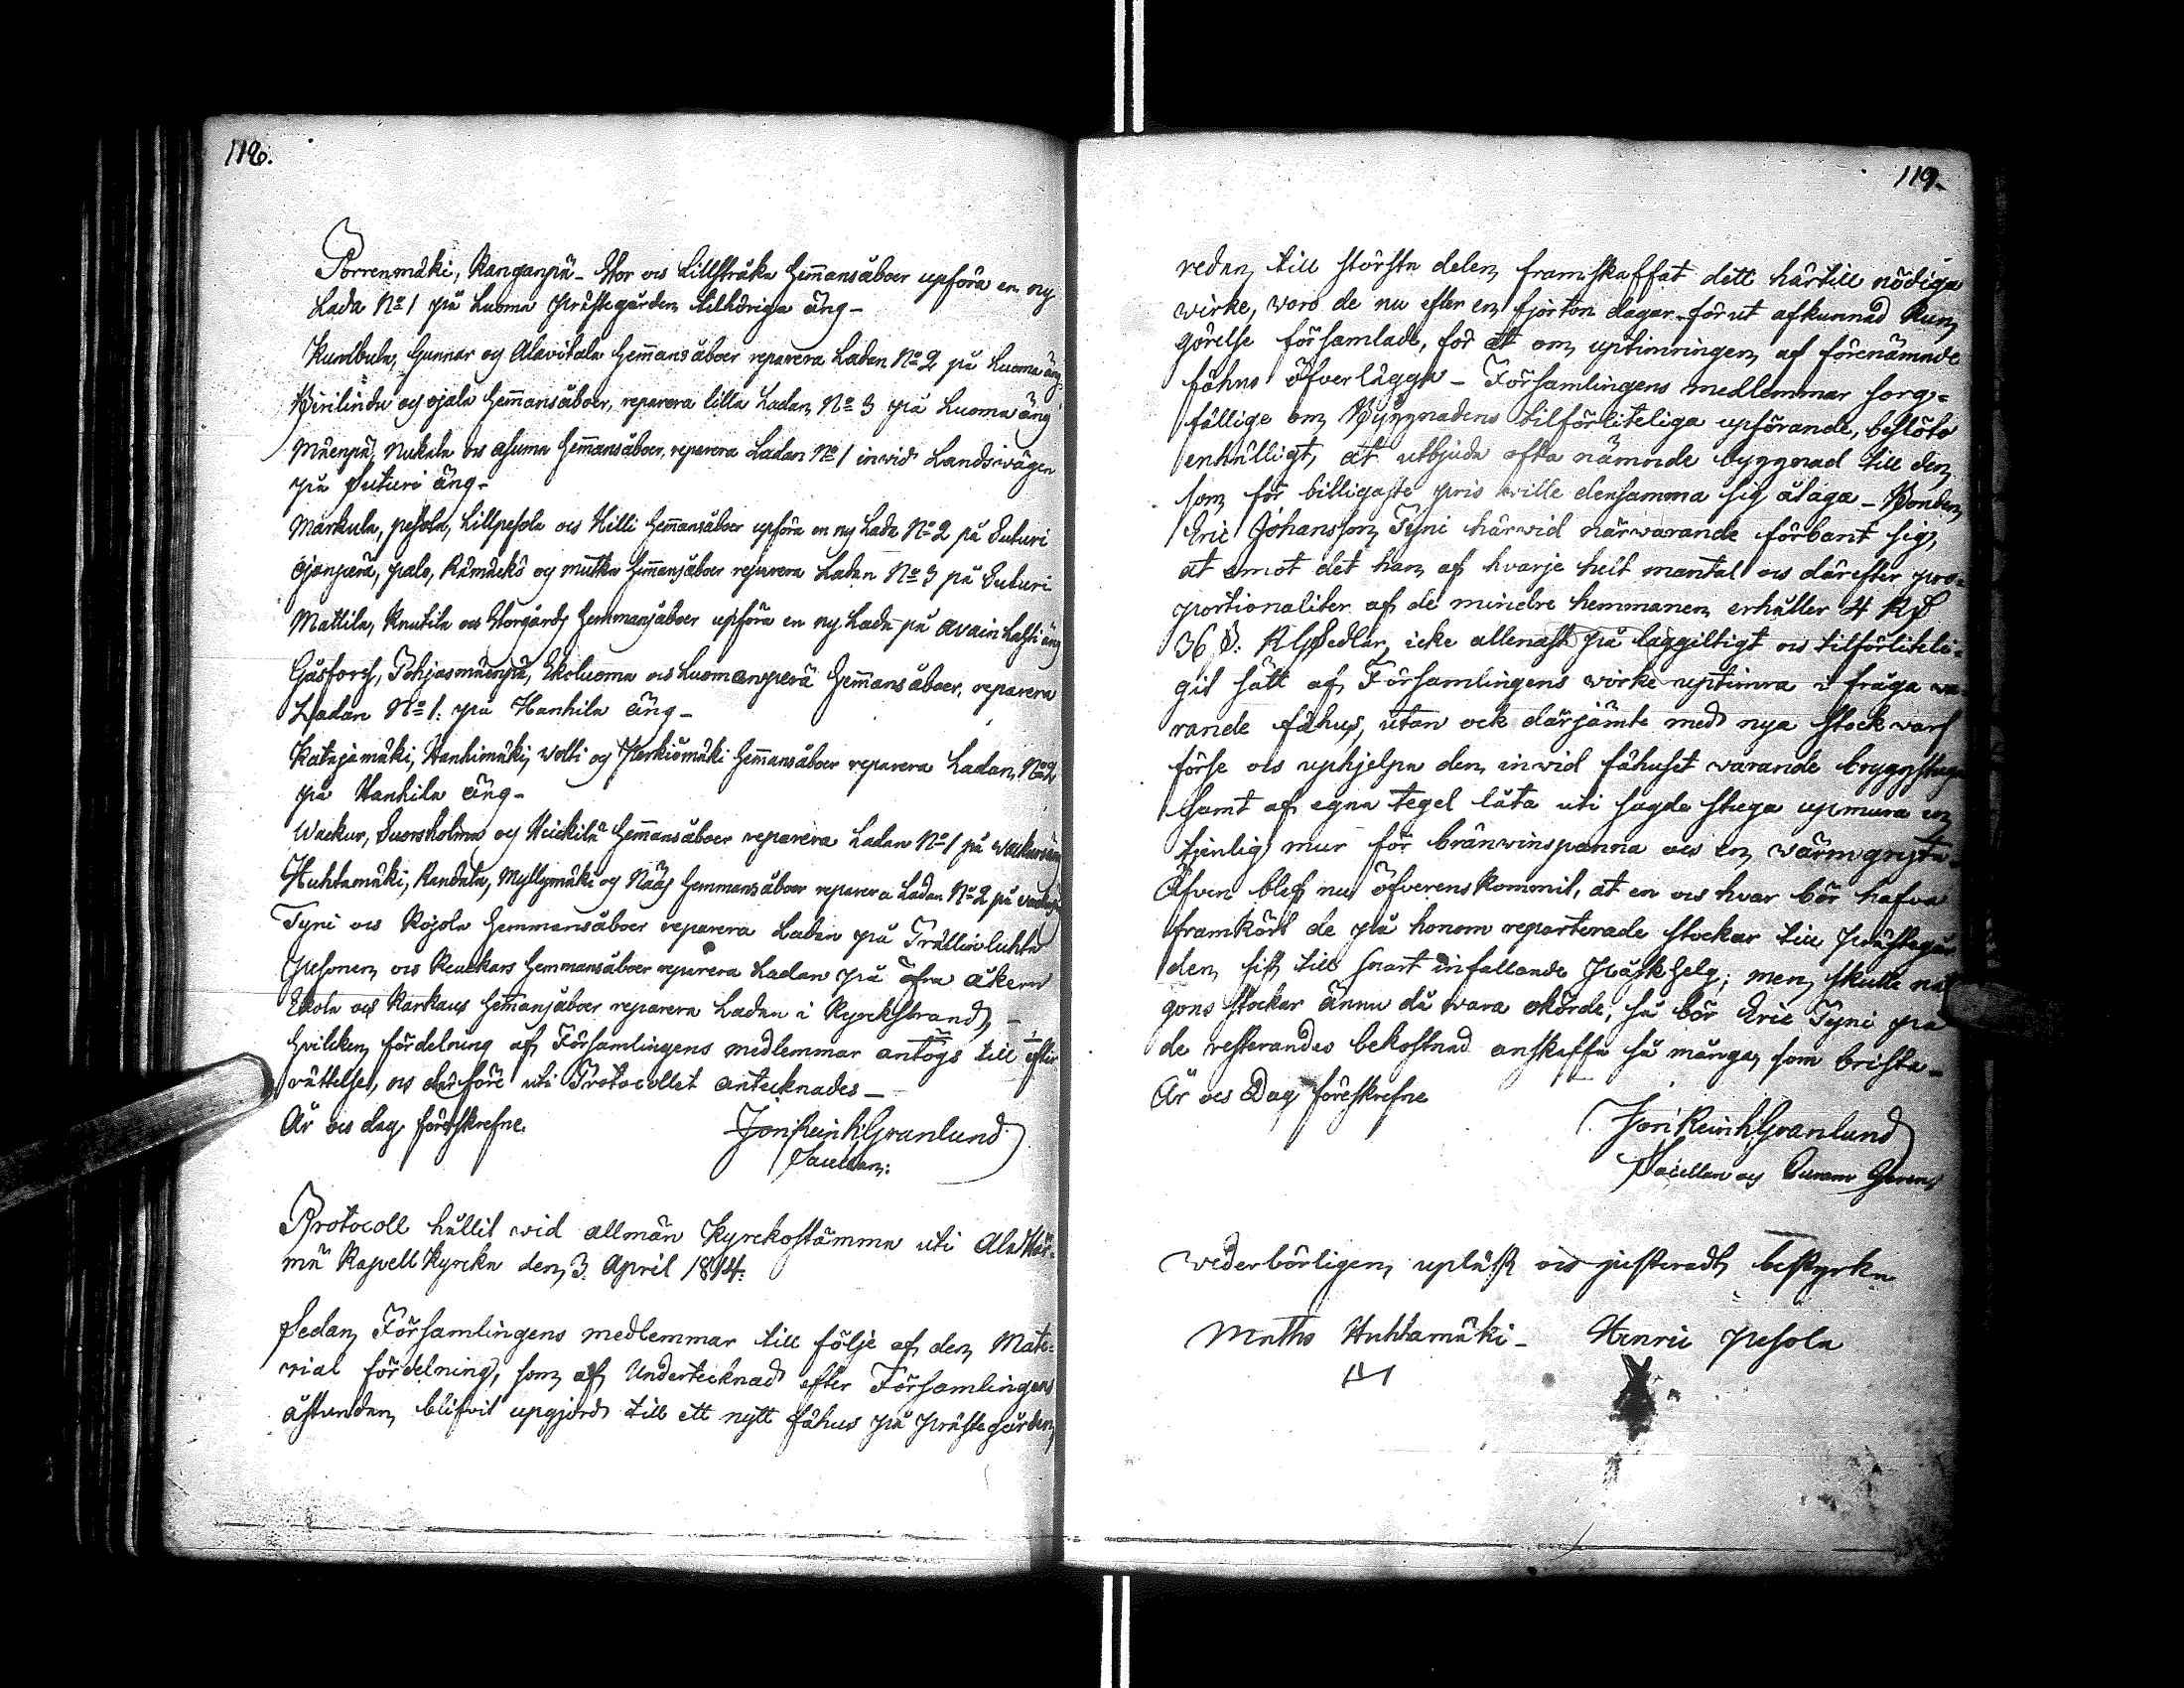 118.
Porrenmäki, Kanganpä- Stor och Lillstråka Hemansåboer upföra en ny
Lada No 1 på Luoma Prästegården tilhöriga äng-
Kumbula, Gunnar og Alavitala Hemansåboer reparera Ladan No 2 på Luoma äng-
Pirilinda og ojala Hemansåboer, reparera lilla Ladan No 3 på Luoma äng
Mäenpä, Nukala och asuma Hemansåboer, reparera Ladan No 1 inwid Landswägen
på Suturi äng-
Markula, pesola, Lillpesola och Hilli Hemansåboer upföra en ny Lada No 2 på Suturi
Ojanperä, palo, Rämäckö og mutka Hemansåboer reparera Ladan No 3 på Suturi
Mattila, Knutila och Storgårds Hemmansåboer upföra en ny Lada på avain Lahti äng
Gåsfors, Pohjasmäenpä, Ekoluoma och Luomanperä Hemansåboer, reparera
Ladan No 1. på Hanhila äng-
Katajamäki, Hanhimäki, Wolti og Perkiömäki Hemansåboer reparera Ladan No 2
på Hanhila äng-
Wackur, Suorsholma og Heickilä Hemansåboer reparera Ladan No 1 på Wackuri äng
Huhtamäki, Kandala, Myllymäki og Nääs Hemmansåboer reparera Ladan No 2 på
Tyni och Kojola Hemmansåboer reparera Ladan på Trällinluhta
Pesonen och Keuckars Hemmansåboer reparera Ladan på öfra åkern
Ekola och Karhaus Hemansåboer reparera Ladan i Kyrckstrand, -
Hvilcken fördelning af Församlingens medlemmar antogs till efter-
rättelse, och därföre uti Protocollet antecknades -
År och dag förrskrefne.
Jon Reinh Granlund
Sacellan:
Protocoll hållit wid allmän Kyrckostämma uti Ala Här-
mä Kapell Kyrcka den 3. April 1814.
Sedan Församlingens medlemmar till följe af den Mate-
rial fördelning, som af Undertecknad efter Församlingens
åstundan blifvit upgjord till ett nytt fähus på prästegården
119.
redan till största delen framskaffat dett härtill nödiga
wirke, voro de nu efter en fjorton dagar förut afkunnad Kun-
görelse församlade, för att om uptimringen af förenämnde
fähus öfverlägga - Församlingens medlemmar sorg-
fällige om Byggnadens tilförliteliga upförande, beslöto
enhälligt, at utbjuda ofta nämnde byggnad till den
som för billigaste pris wille densamma sig åtaga - Bonden
Eric Johansson Tyni härwid närwarande förbant sig,
at emot det han af hvarje helt mantal och därefter pro-
portionaliter af de mindre hemmanen erhåller 4 Rd
36 s: RgSedlar, icke allenast på laggiltigt och tilförliteli-
git sätt af Församlingens wirke uptimra i fråga wa-
rande fähus, utan ock därjämte med nya stock warf
förse och uphjelpa den inwid fähuset warande bryggstuga
samt af egna tegel låta uti sagde stuga upmura en
tjenlig mur för bränwinspanna och en wärmgryta-
Äfven blef nu öfverenskommit, at en och hvar bör hafva
framkört de på honom reparterade stockar till prästegår-
den sist till snart infallande Påsk helg; men skulle nå-
gons stockar ännu då wara okörde, så bör Eric Tyni på
de resterandes bekostnad anskaffa så många som brista-
År och Dag föreskrefne
Jon Reinh Granlund
Sacellan og Curam Gerens
Wederbörligen upläst och justeradt, bestyrka
Matts Huhtamäki - Henric Pesola